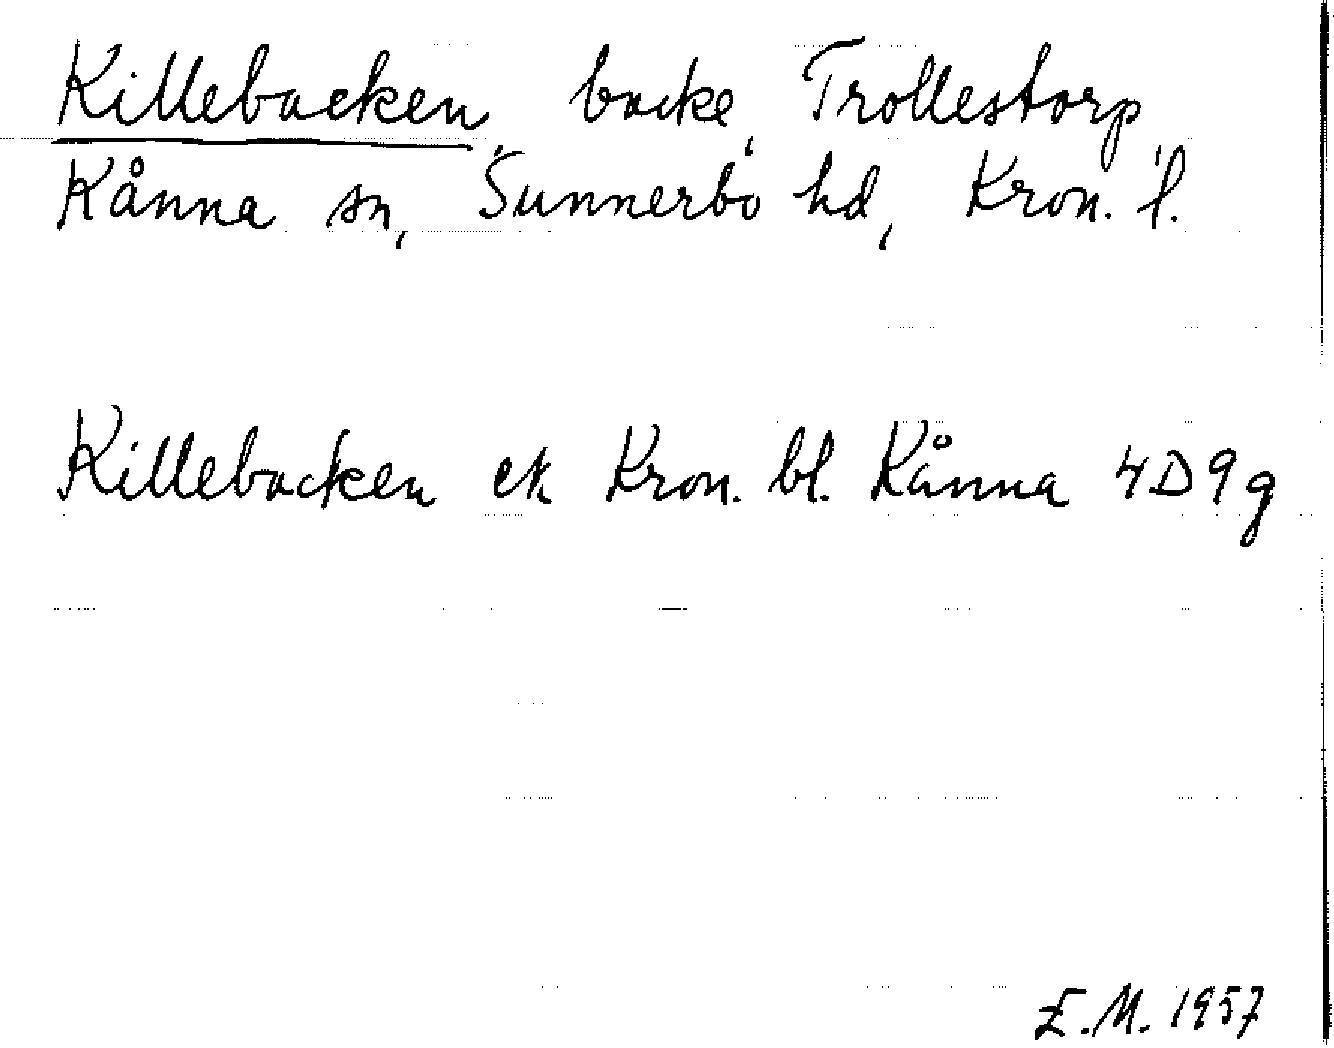 Killebacken, backe, Trollestorp,
Kånna sn, Sunnerbo hd, Kron. l.
Killebacken ek Kron. bl. Kånna 4D9g
E.M. 1957